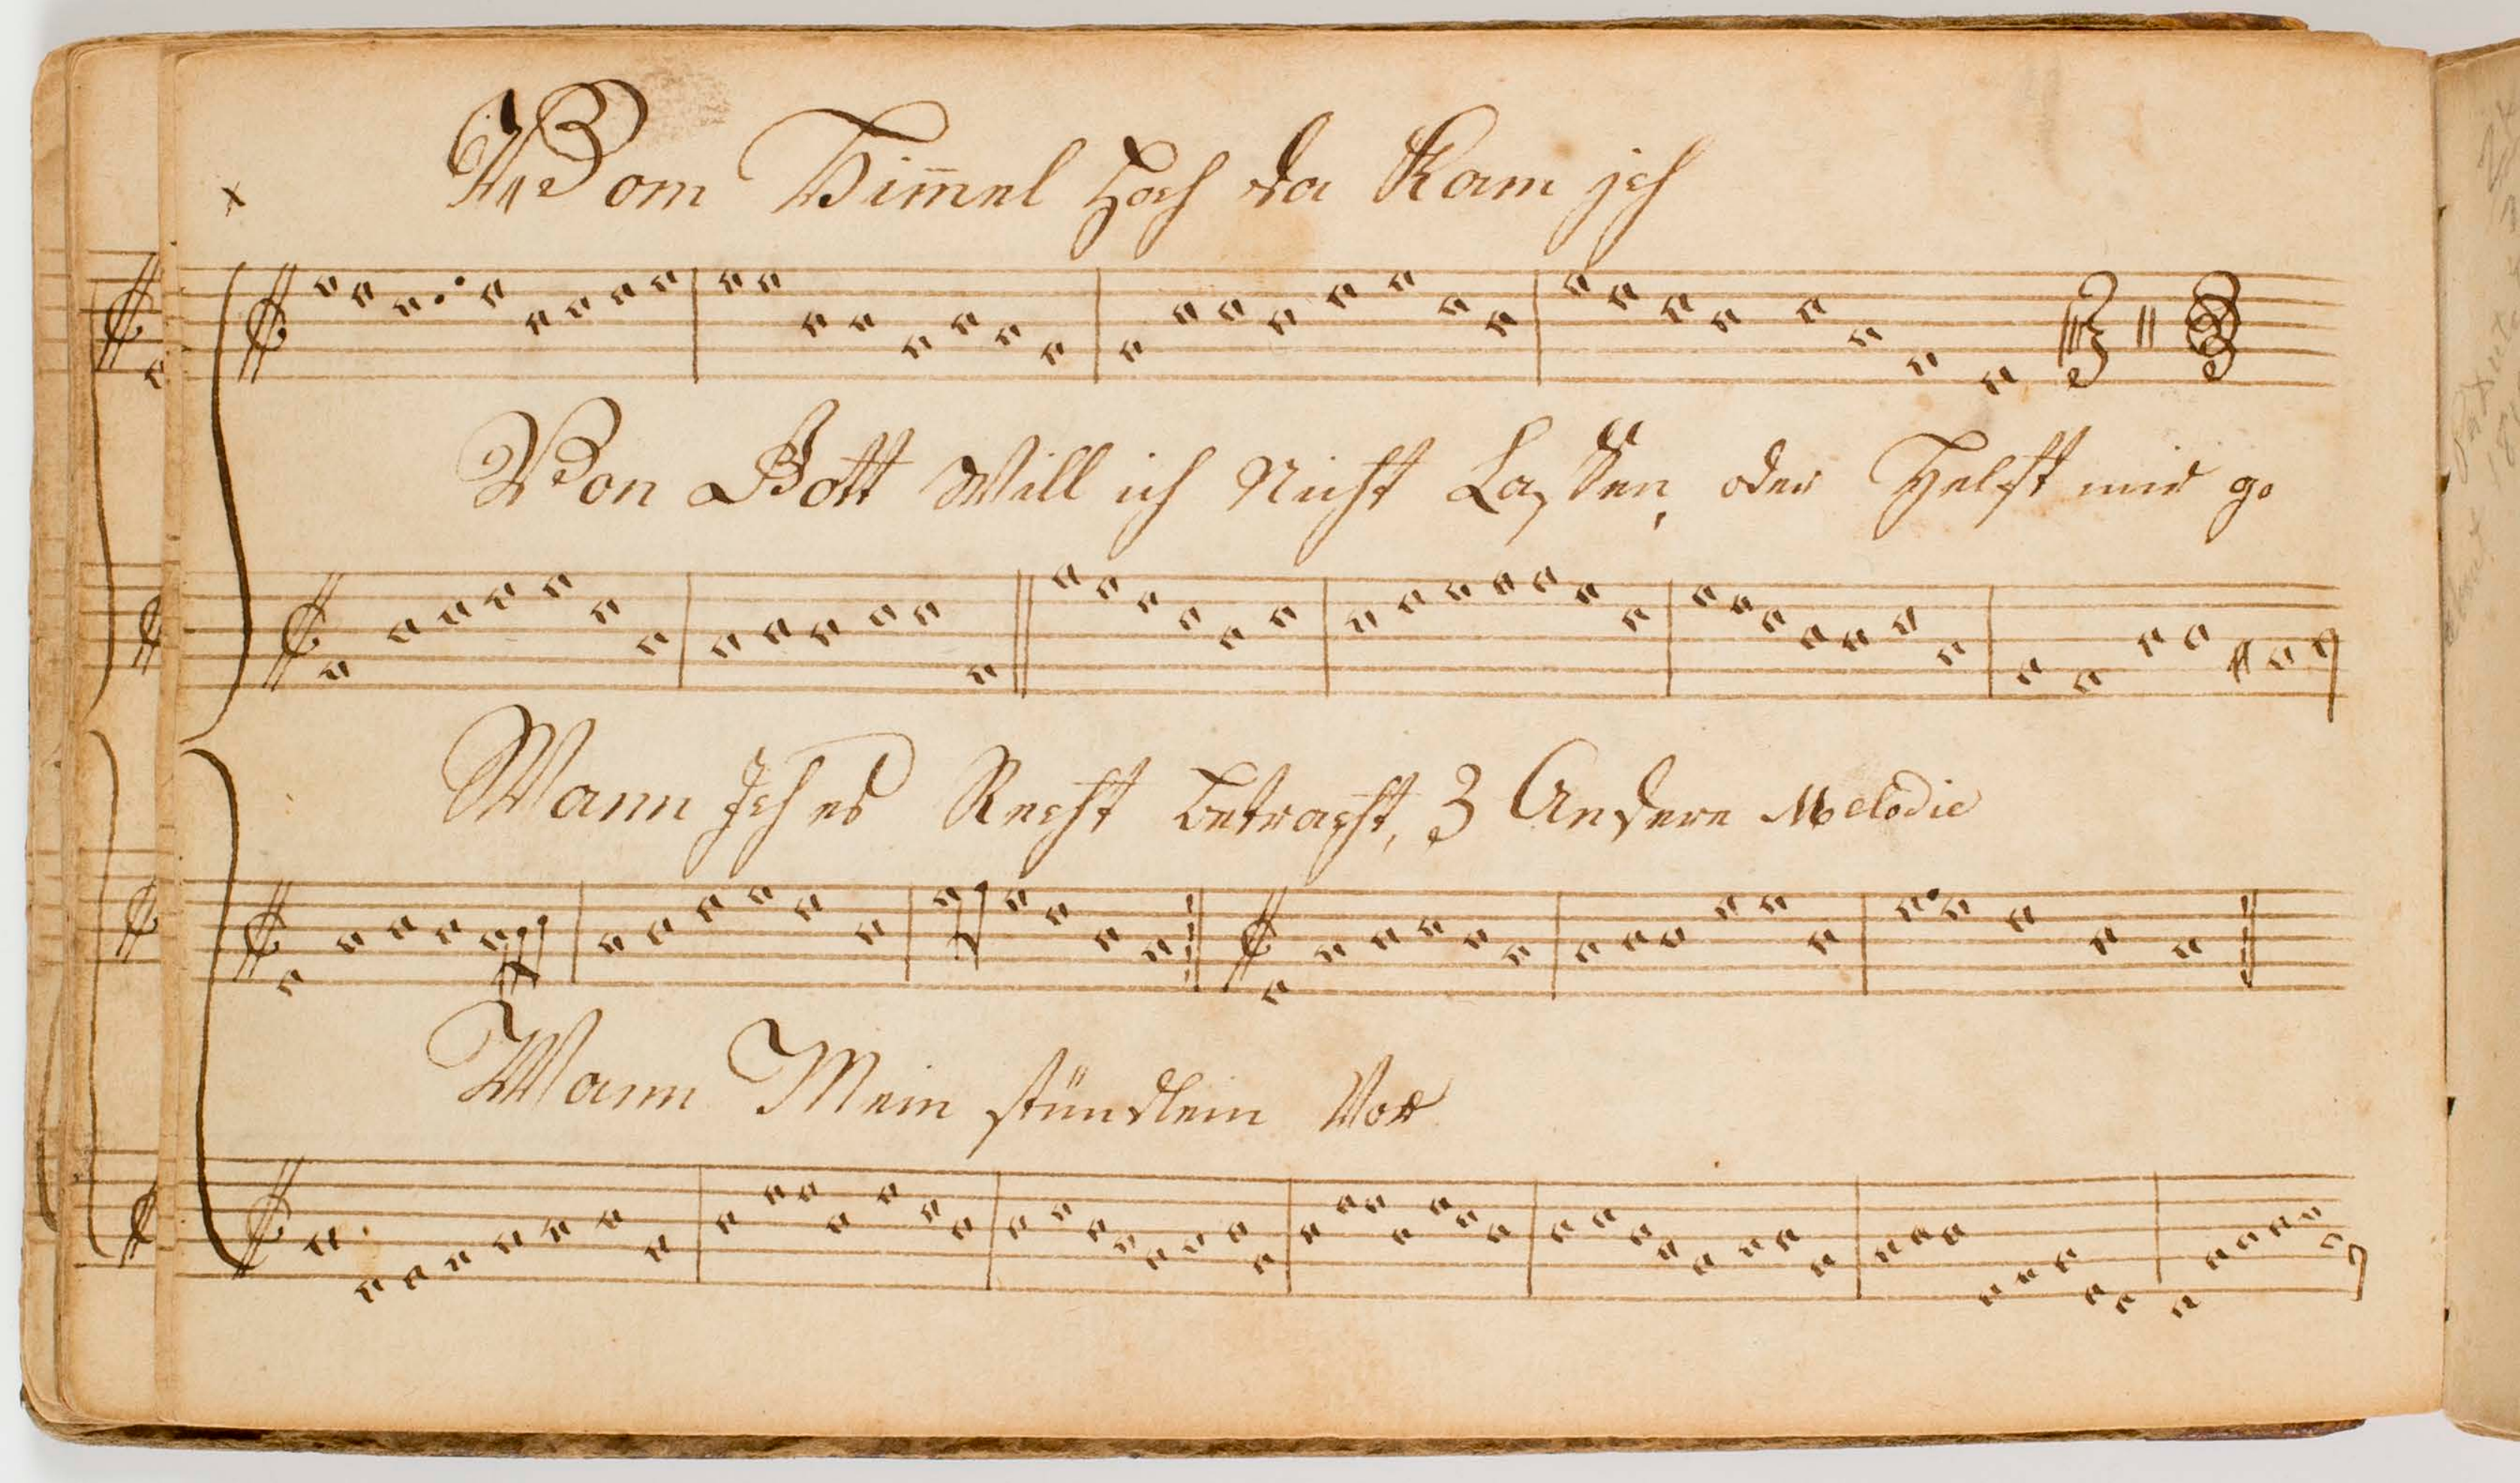 Vom Him̅el hoch da Kam ich
Von Gott Will ich Nicht Laßen, oder Helfft mir go
Wann Ich es Recht betracht, 3 Andere Melodie
Wann Mein stündlein Vor